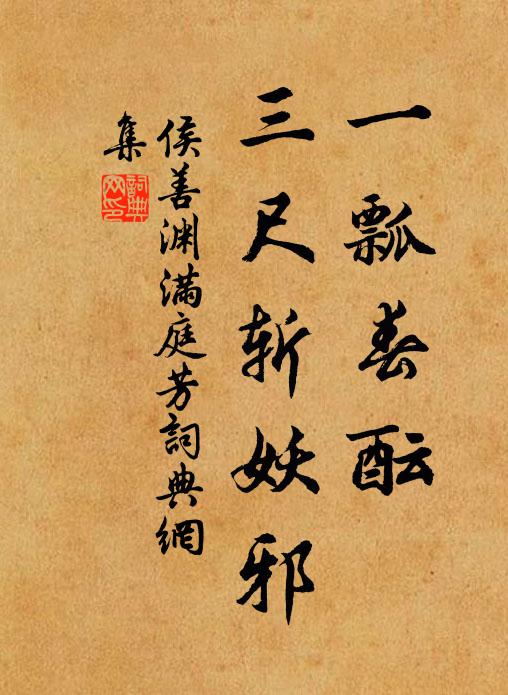 一瓢春酝
三尺斩妖邪
侯善渊满庭芳詞典網
集
詞典
网印